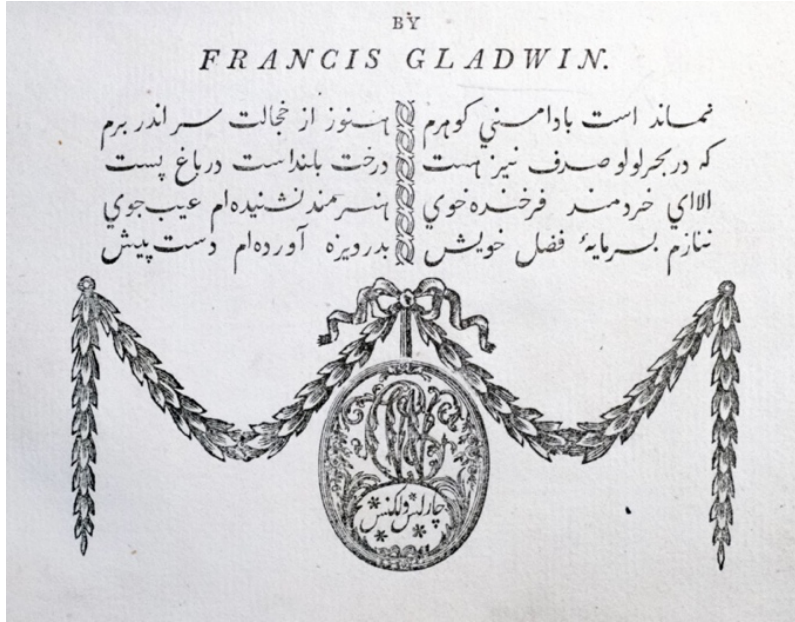 BY
FRANCIS GLADWIN.
نماند است بادامني کوهرم هنوز از خجالت سر اندر برم
که در بحر لولو صدف نیز هست درخت بلنداست درباغ پست
الااي خردمند فرخنده خوي هنرمند نشنیده‌ام عیب‌جوي
ننازم بسرمایهٔ فضل خویش بدرویزه آورده‌ام دست پیش
چارلس ولکنس